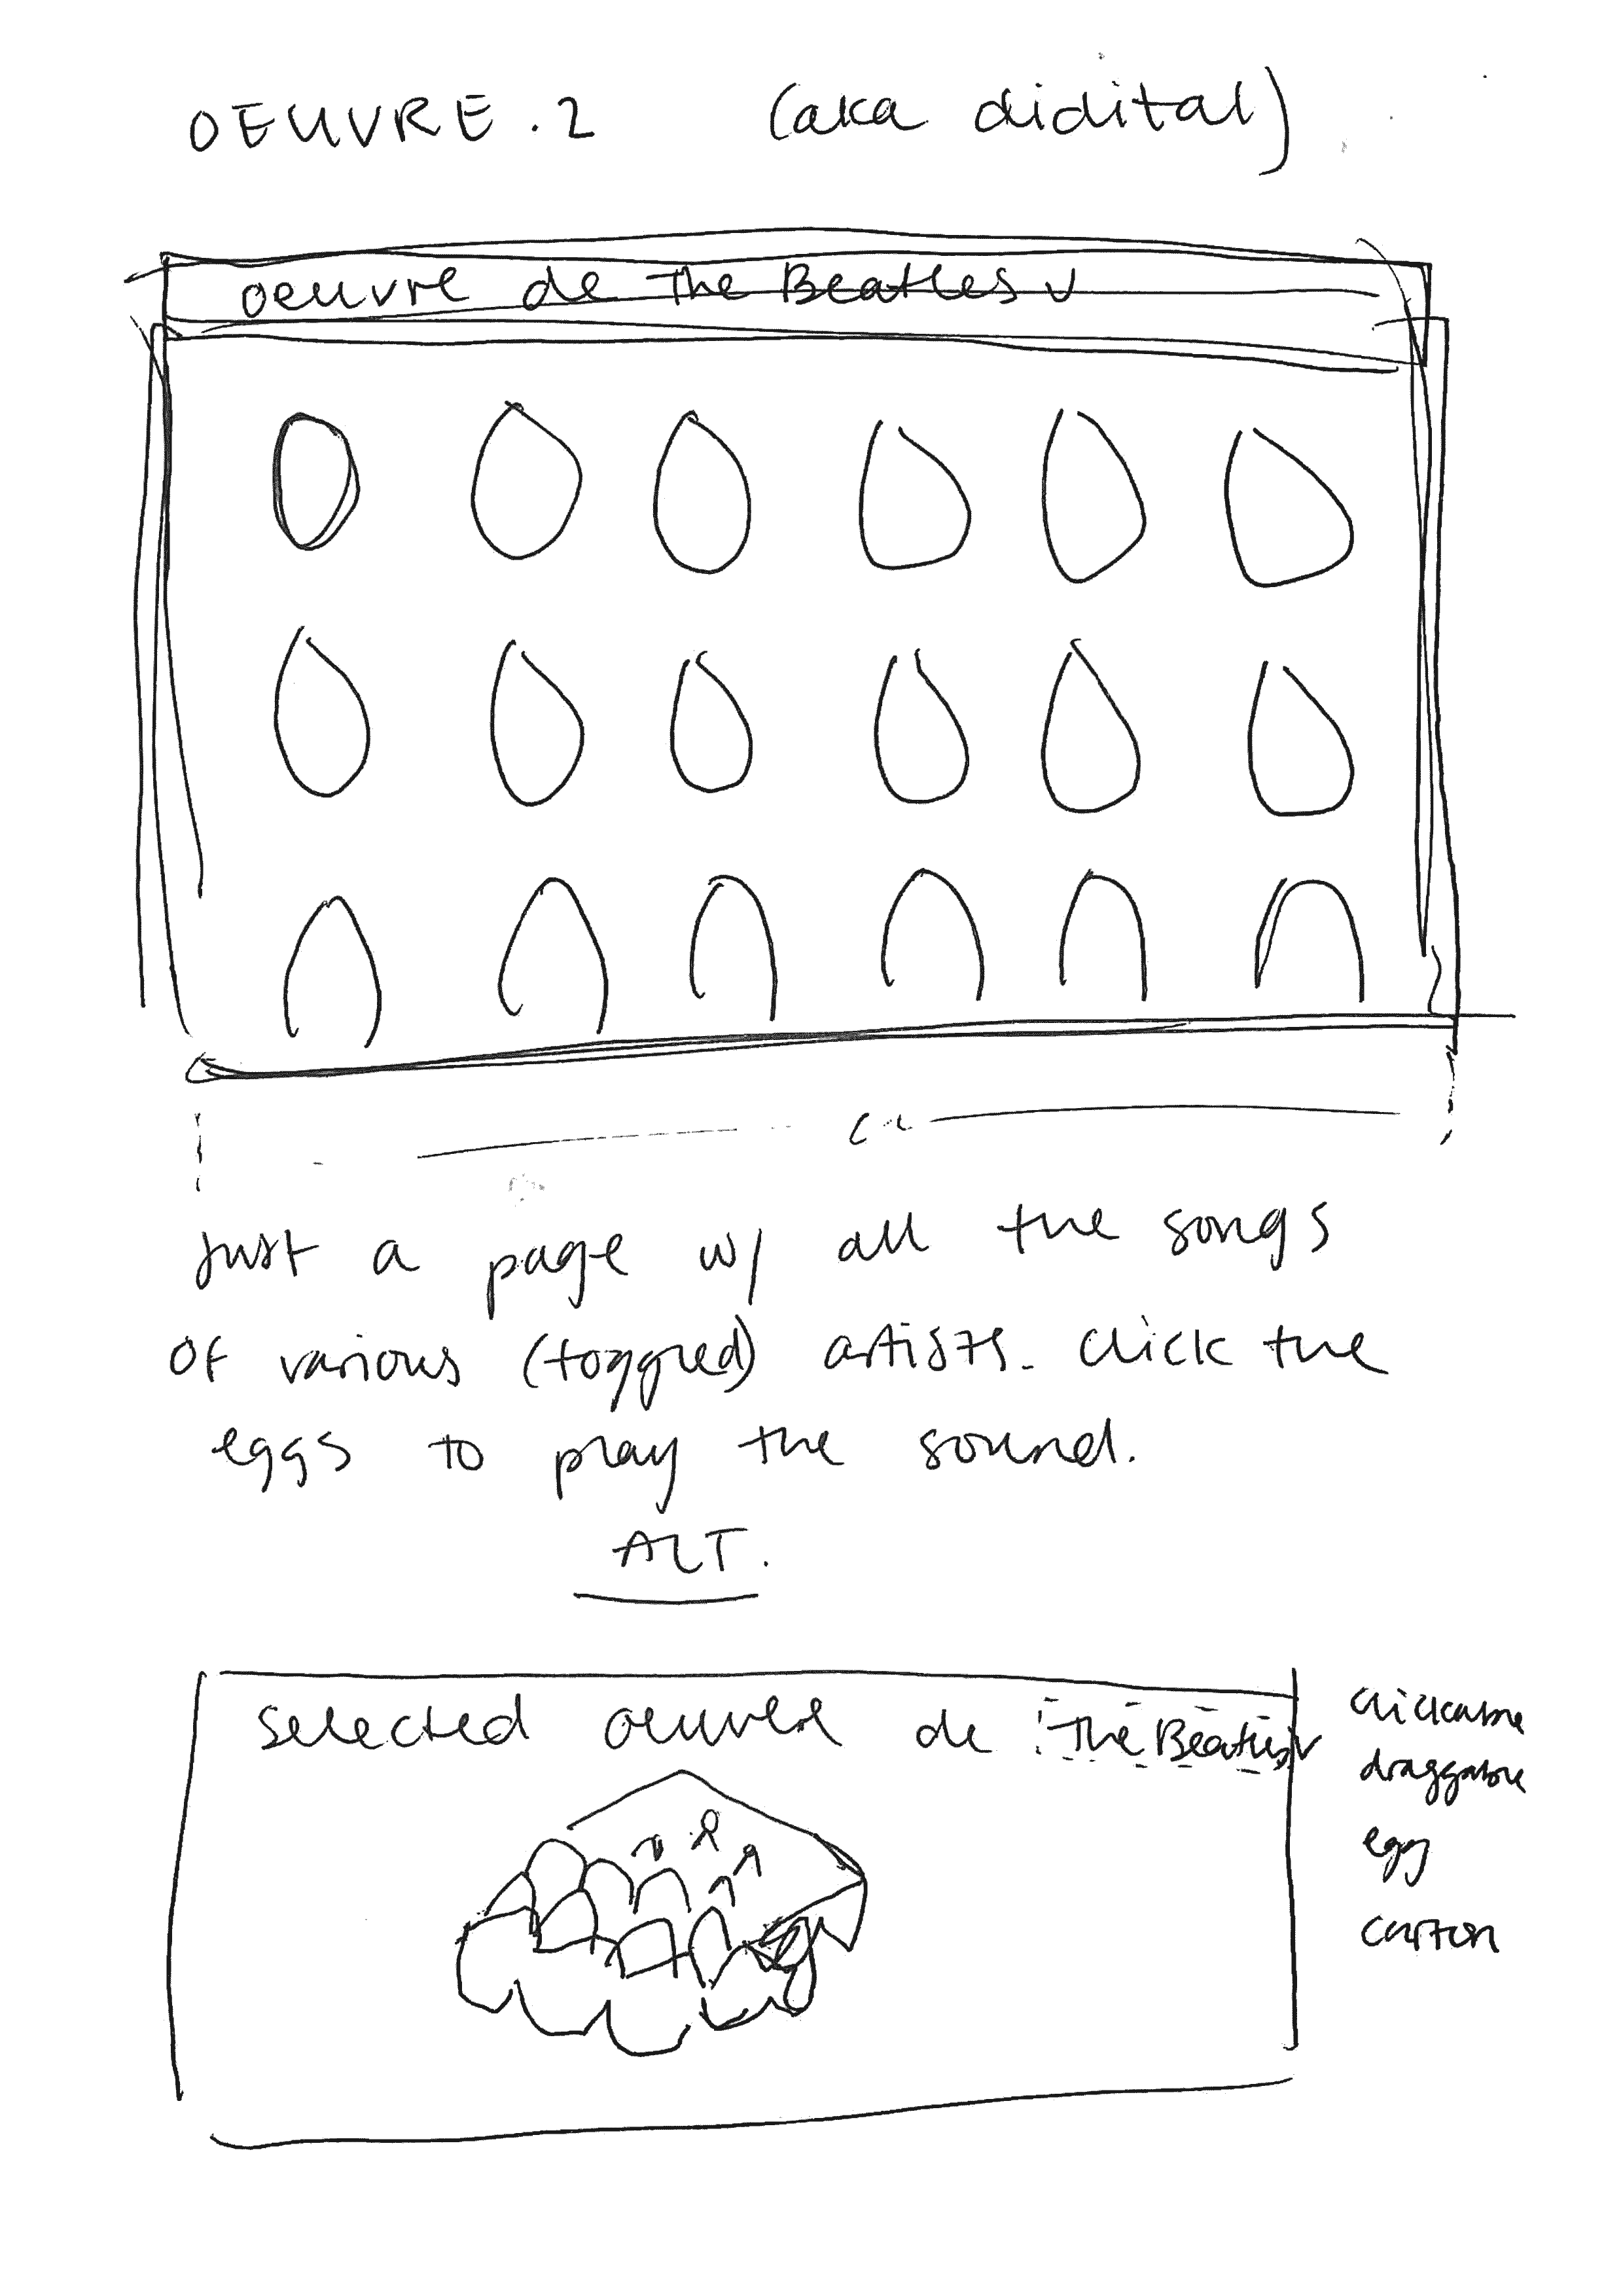 OEUVRE.2 (aka didital)
oeuvre de The Beatles
Just a page w/ all the songs
of various (toggled) artists. Click the
eggs to play the sound.
ALT.
selected oeuvre de The Beatles
clickable
draggable
egg
carton